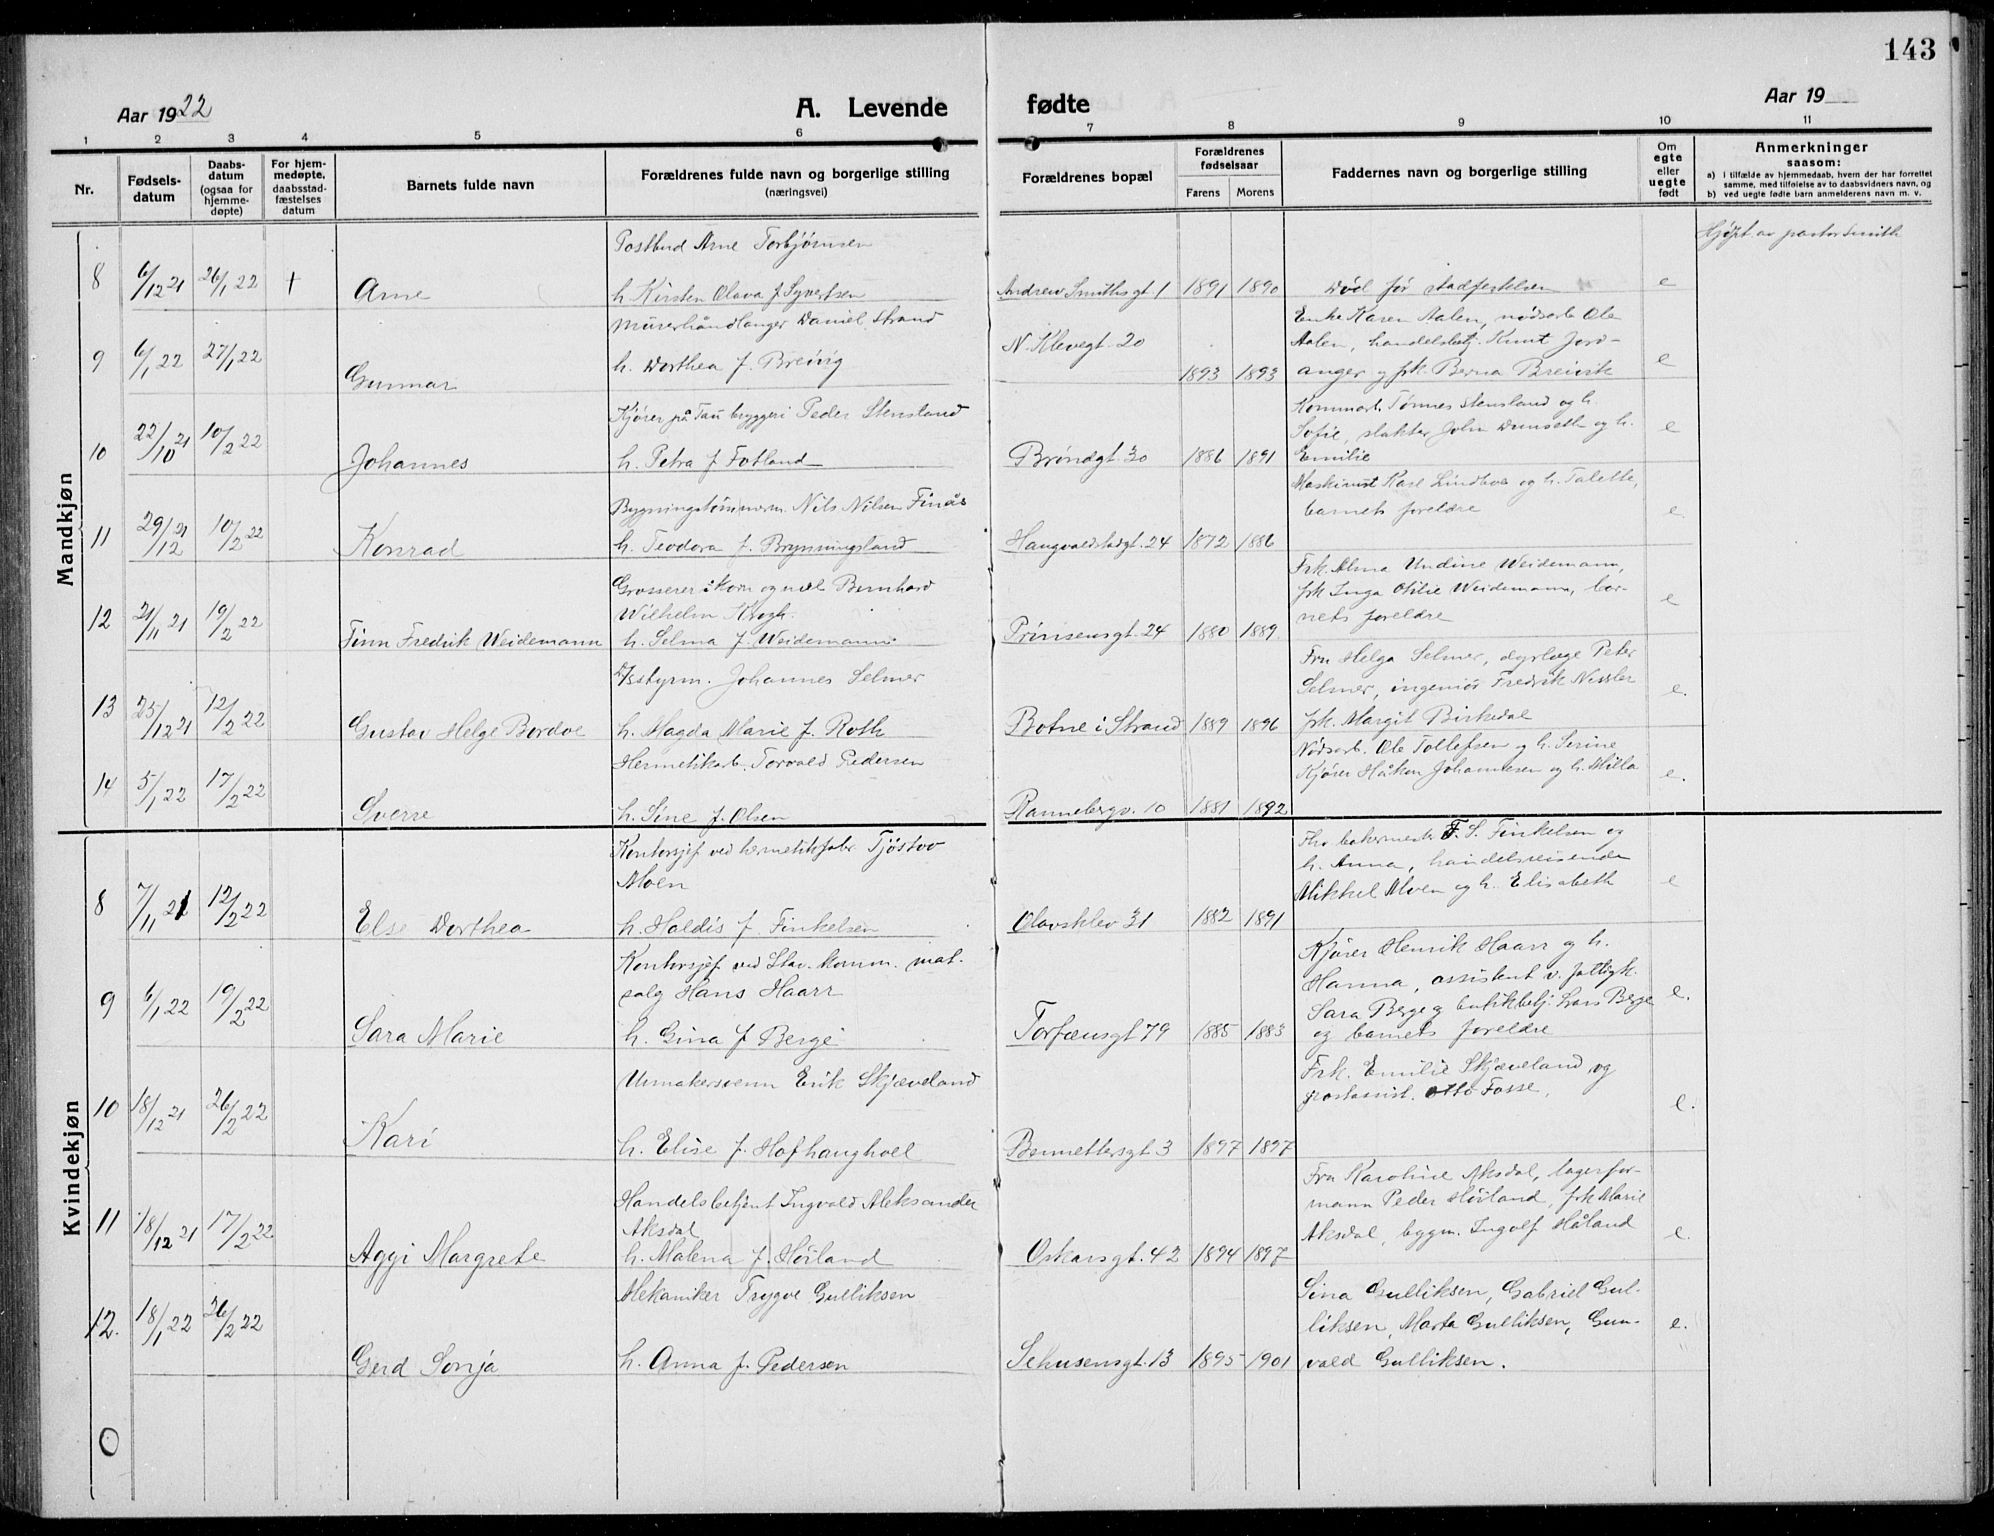 143
Aar 1922
A. Levende fødte
Aar 19
1 2 3 4 5 6 7 8 9 10 11
Nr.
Fødsels-
datum
Daabs-
datum
(ogsaa for
hjemme-
døpte)
For hjem-
medøpte,
daabsstad-
fæstelses
datum
Barnets fulde navn
Forældrenes fulde navn og borgerlige stilling
(næringsvei)
Forældrenes bopæl
Forældrenes
fødselsaar
Farens Morens
Faddernes navn og borgerlige stilling
Om
egte
eller
uegte
født
Anmerkninger
saasom:
a) i tilfælde av hjemmedaab, hvem der har forrettet
samme, med tilføielse av to daabsvidners navn, og
b) ved uegte fødte barn anmelderens navn m. v.
Mandkjøn
Postbud Arne Torbjørnsen
Hjdpt. av pastor Smith
8 6/12 21 26/1 22 + Arne h. Kirsten Olava f. Syvertsen Andrew Smithsgt. 1 1891 1890 Død før stadfestelsen e
Murerhåndlanger Daniel Strand
Enke Karen Aalen, nødsarb. Ole
9 6/1 22 27/1 22 Gunnar h. Dorthea f. Breivig N. Klevegt. 20 1893 1893 e
Aalen, handelsbetj. Knut Jord-
anger og frk. Berna Breivik
Kjører på Tau bryggeri Peder Stensland
Kommarb. Tønnes Stensland og h.
10 22/10 21 10/2 22 Johannes h. Petra f. Fotland Brøndgt. 30 1886 1891 e
Sofie, slakter John Dunseth og h.
Emilie
Bygningstømmerm. Nils Nilsen Finås
Maskinist Karl Lindboe og h. Talette,
barnets foreldre
11 29/12 21 10/2 22 Konrad h. Teodora f. Brynningsland Haugvaldstadgt. 24 1872 1886 e.
Grosserer i korn og mel Bernhard
Wilhelm Krogh.
Frk. Alma Undine Weidemann,
frk Inga Otilie Weidemann, bar-
nets foreldre
12 21/11 21 19/2 22 Finn Fredrik Weidemann h. Selma f. Weidemann. Prinsensgt. 24 1880 1889. e
D/S styrm. Johannes Selmer
Fru Helga Selmer, dyrlæge Peter
Selmer, ingeniør Fredrik Nissler
frk. Margit Birkedal
13 25/12 21 12/2 22 Gustav Helge Bordoe h. Magda Marie f. Roth Botne i Strand 1889 1896 e.
Hermetikarb. Torvald Pedersen
Nødsarb. Ole Tollefsen og h. Serine
Kjører Håkon Johannesen og h. Milla
14 5/1 22 17/2 22 Sverre h. Sine f. Olsen Rannebergv. 10 1881 1892 e.
Kvindekjøn
Kontorsjef ved hermetikfabr. Tjøstov
Moen
Fhv. bakermester F. S. Finkelsen og
h. Anna, handelsreisende
Mikkel Moen og h. Elisabeth
8 7/11 21 12/2 22 Else Dorthea h. Haldis f. Finkelsen Olavsklev 31 1882 1891 e
Kontorsjef ved Stav. komm. mat.
salg Hans Haarr
Kjører Henrik Haarr og h.
Hanna, assistent v. fattigk.
Sara Berge og butikbetj. Lars Berge
og barnets foreldre
9 6/1 22 19/2 22 Sara Marie h. Gina f. Berge Torfæusgt 79 1885 1883 e.
Urmakersvenn Erik Skjæveland
Frk. Emilie Skjæveland, og
postassist. Otto Fosse.
10 18/12 21 26/2 22 Kari h. Elise f. Hofhanghoel Bennettersgt 3 1897 1897 e.
Handelsbetjent Ingvald Aleksander
Aksdal
Fru Karoline Aksdal, lagerfor-
mann Peder Høiland, frk Marie
Aksdal, byggm. Ingolf Håland
11 18/12 21 17/2 22 Aggi Margrete h. Malena f. Høiland Oskarsgt. 42 1894 1897 e.
Mekaniker Trygve Gulliksen
Sina Gulliksen, Gabriel Gul-
liksen, Marta Gulliksen, Gun-
vald Gulliksen.
12. 18/1 22 26/2 22 Gerd Sonja h. Anna f. Pedersen Sehusensgt. 13 1895 1901 e.